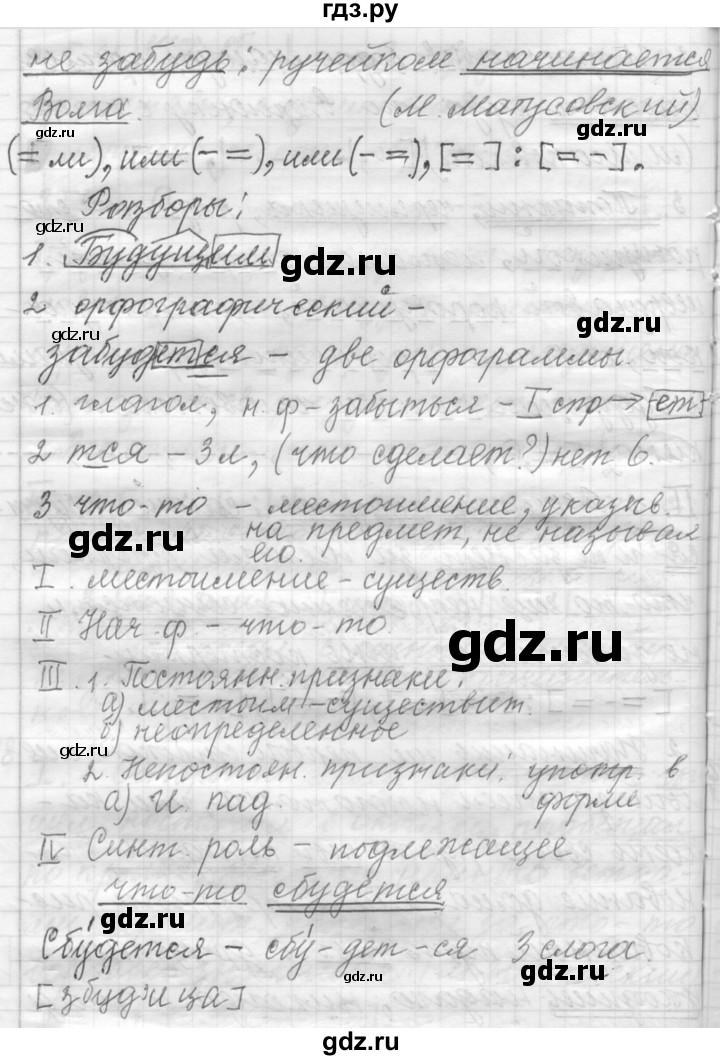 гдз.ру
не забудь: ручейком начинается
Волга. (М. Матусовский).
gdz.ru gdz.ru
(= ли), или (- =), или (- =), [=] : [= -].
Разборы:
gdz.ru
1. Будущим
gdz.ru
2 орфографический -
gdz.ru gdz.ru
забудется - две орфограммы.
1. глагол, н. ф - забыться - I спр → ет
2 тся - 3 л, (что сделает?) нет 6.
3 что-то - местоимение, указыв.
на предмет, не называя
его.
gdz.ru gdz.ru
I. местоимение - существ.
II Нач. ф. - что-то.
gdz.ru
III. 1. Постоянн. признаки:
а) местоим - существит.
б) неопределенное
gdz.ru
2. Непостоян. признаки: употр. в
форме
а) И. пад
gdz.ru gdz.ru
IV Синт. роль - подлежащее
что-то сбудется
gdz.ru
Сбу́дется - сбу́-дет-ся 3 слога.
gdz.ru
[збуд'ица]
gdz.ru
gdz.ru